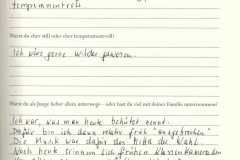 temperamentvoll.
Warst du eher still oder eher temperamentvoll?
Ich wäre gerne wilder gewesen.
Warst du als Junge lieber allein unterwegs – oder hast du viel mit deiner Familie unternommen?
Ich war, was man heute schüchtern nennt.
Dafür bin ich dann relativ früh "ausgebrochen".
Die Musik war dafür das Mittel der Wahl.
Noch heute erinnern sich frühere Klassenkameraden